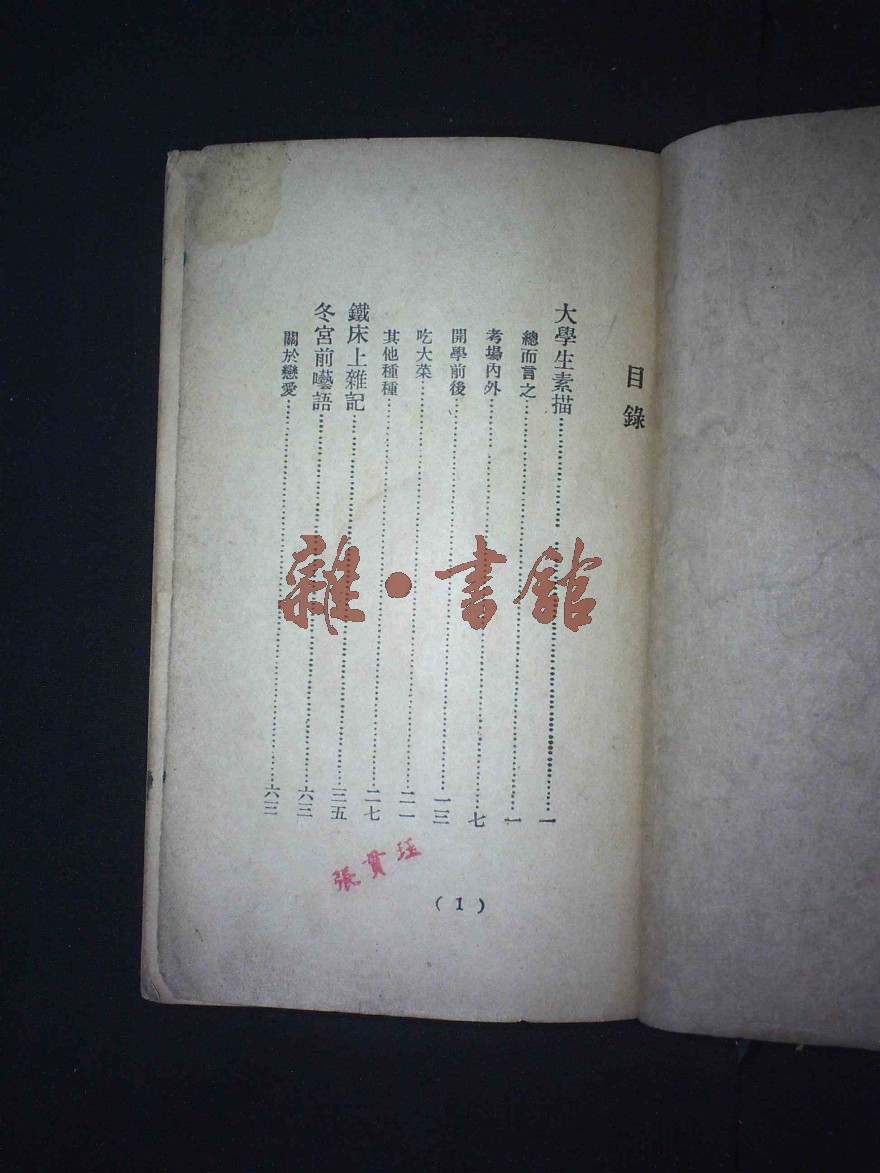 目錄
大學生素描……一
總而言之……一
考場內外……七
開學前後……一三
吃大菜……二一
其他種種……二七
鐵床上雜記……三五
冬宮前囈語……六三
關於戀愛……六三
張貫珏
(1)
雜·書館